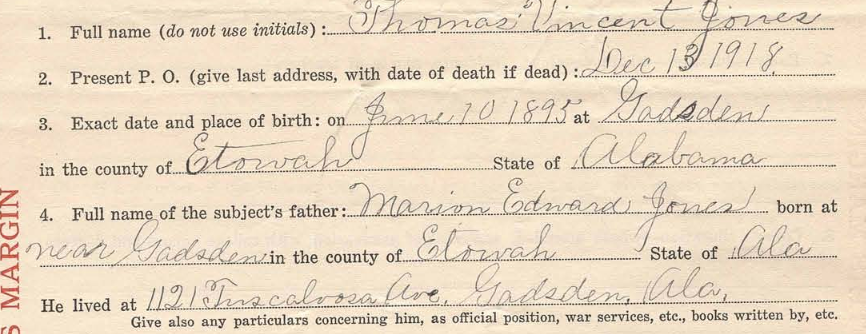 1. Full name (do not use initials) : Thomas Vincent Jones
2. Present P. O. (give last address, with date of death if dead) : Dec 13 1918.
3. Exact date and place of birth: on June 10 1895 at Gadsden
in the county of Etowah State of Alabama
4. Full name of the subject's father: Marion Edward Jones born at
near Gadsden in the county of Etowah State of Ala
He lived at 1121 Tuscaloosa Ave. Gadsden, Ala,
Give also any particulars concerning him, as official position, war services, etc., books written by, etc.
S MARGIN